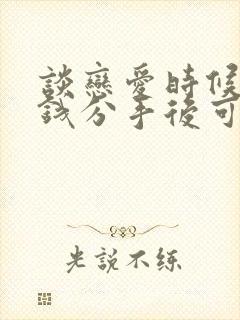 談戀愛時候
錢分手後可
光說不練